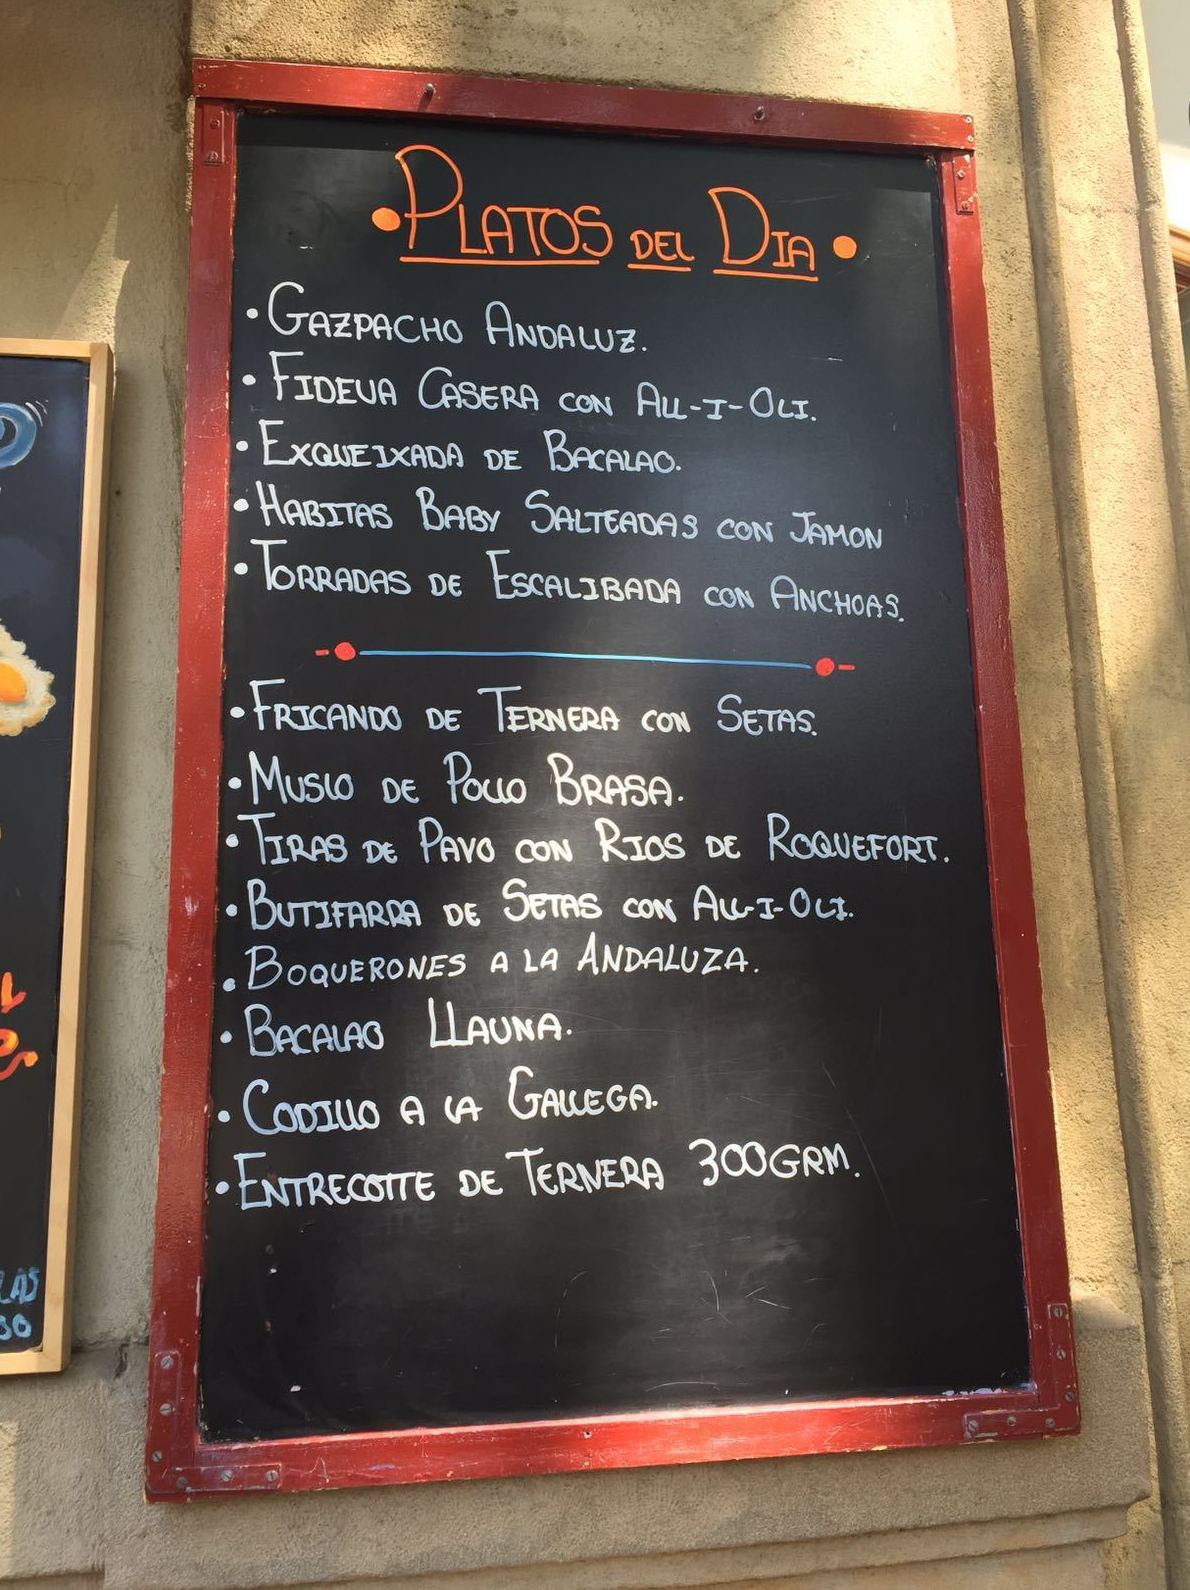 • PLATOS DEL DIA •
• GAZPACHO ANDALUZ.
• FIDEUA CASERA CON ALL-I-OLI.
• EXQUEIXADA DE BACALAO.
• HABITAS BABY SALTEADAS CON JAMON
• TORRADAS DE ESCALIBADA CON ANCHOAS.
• FRICANDO DE TERNERA CON SETAS.
• MUSLO DE POLLO BRASA.
• TIRAS DE PAVO CON RIOS DE ROQUEFORT.
• BUTIFARRA DE SETAS CON ALL-I-OLI.
• BOQUERONES A LA ANDALUZA.
• BACALAO LLAUNA.
• CODILLO A LA GALLEGA.
• ENTRECOTTE DE TERNERA 300GRM.